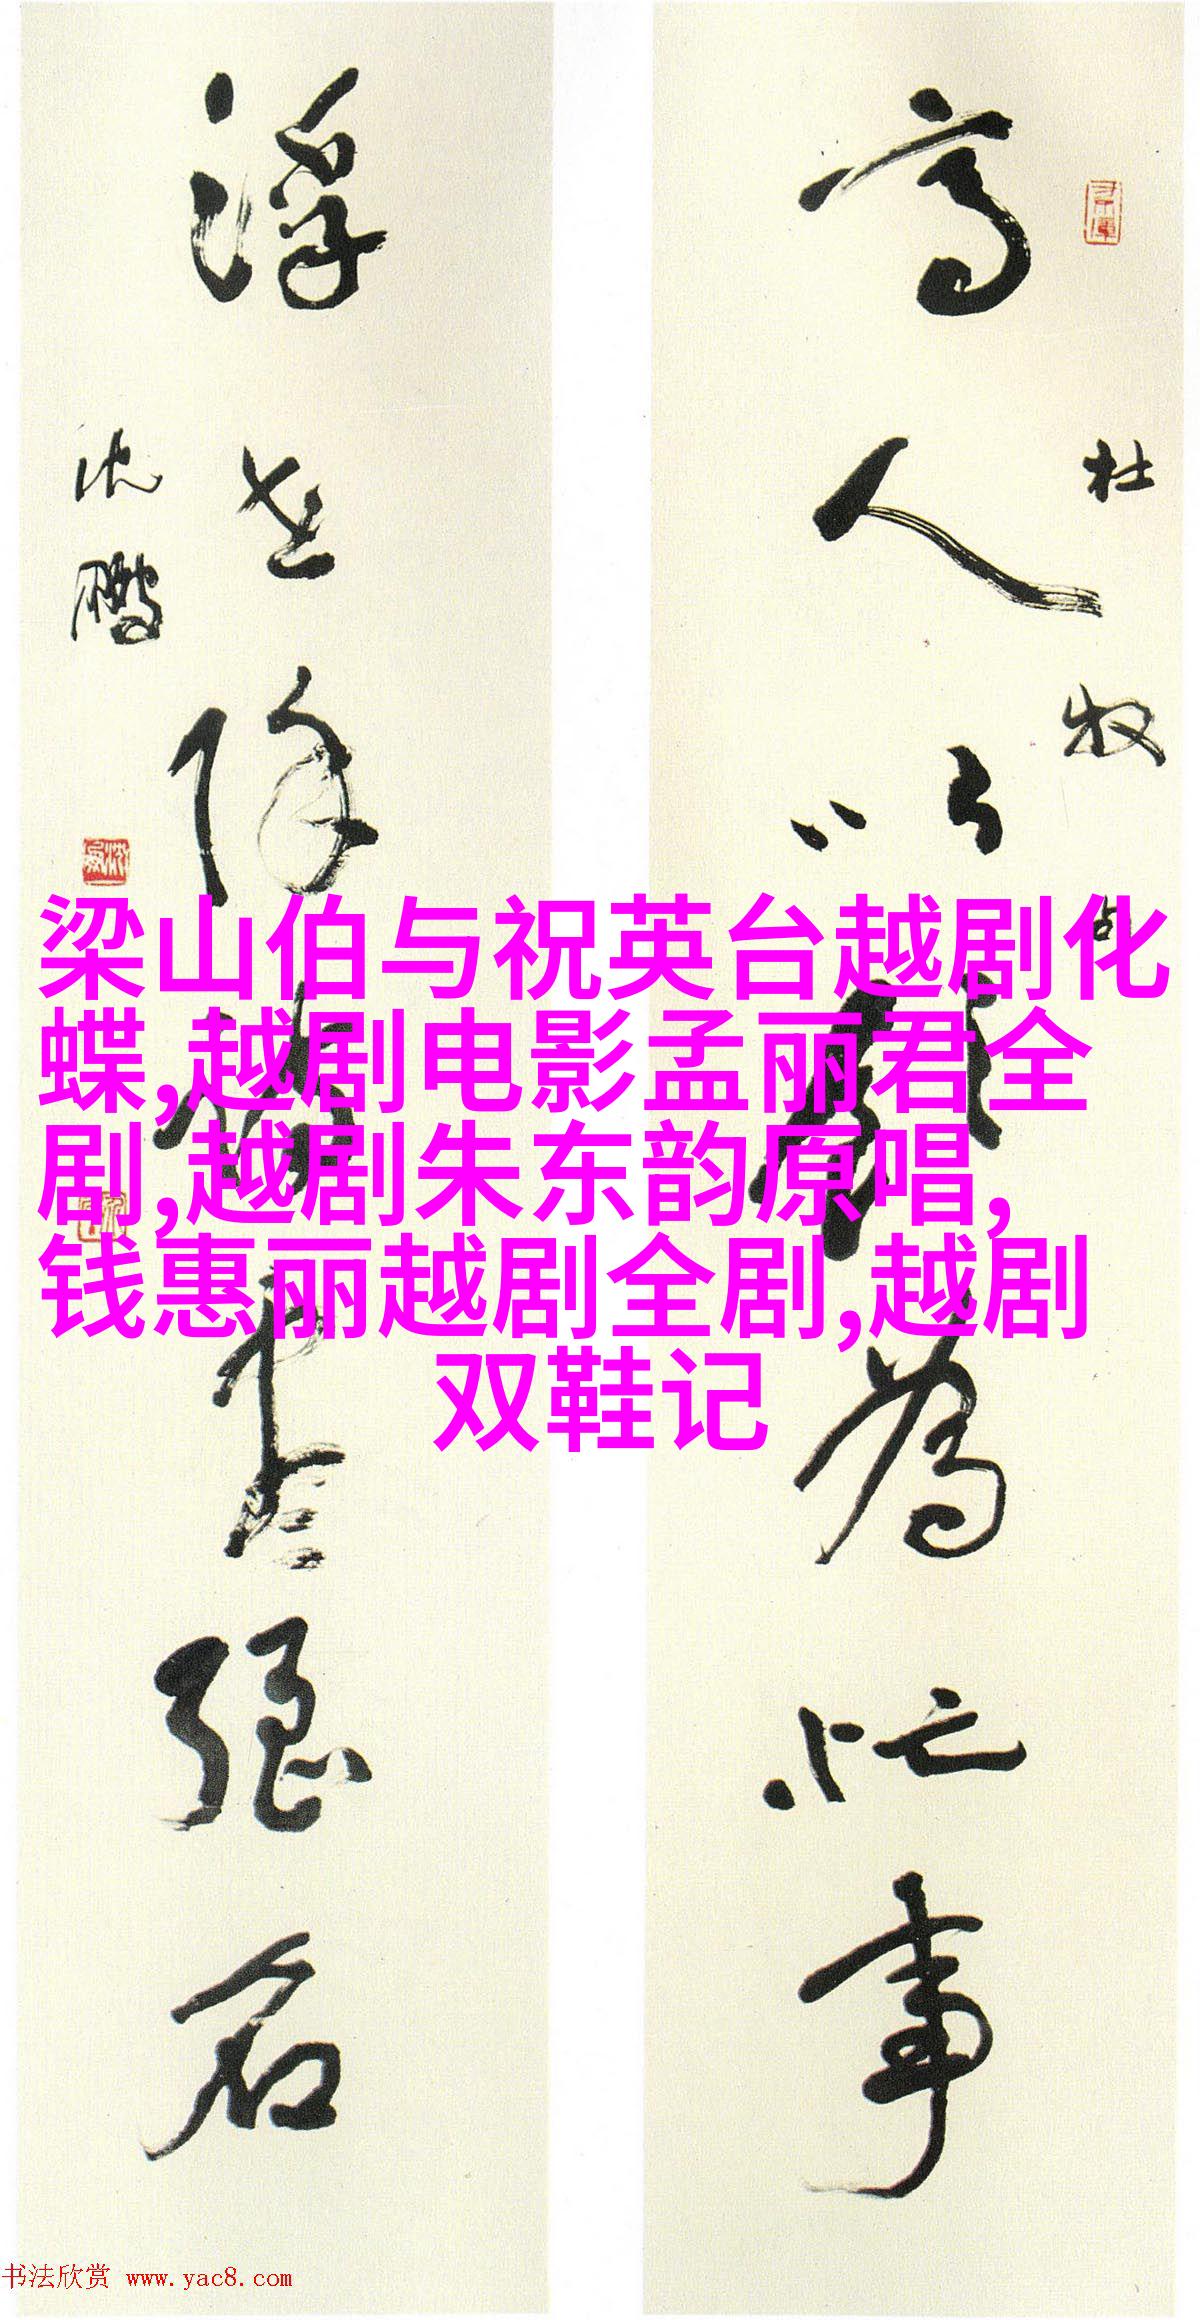 杜牧句
高人以飲為忙事
浮世除詩盡强名
沈鵬
梁山伯与祝英台越剧化
蝶,越剧电影孟丽君全
剧,越剧朱东韵原唱,
钱惠丽越剧全剧,越剧
双鞋记
书法欣赏 www.yac8.com